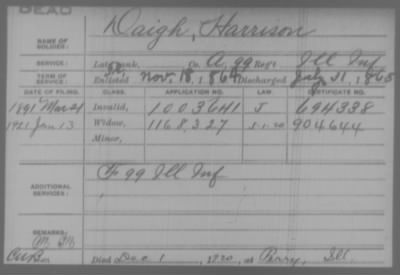 DEAD
NAME OF SOLDIER: Daigh, Harrison
SERVICE: Late rank, Co. A, 99 Reg't Ill Inf
TERM OF SERVICE: Enlisted Nov. 18, 1864 Discharged July 31, 1865
DATE OF FILING. CLASS. APPLICATION NO. LAW CERTIFICATE NO.
1891 Mar 21 Invalid, 1003641 J 694338
1921 Jan 13 Widow, 1168327 5-1-20 904644
Minor,
ADDITIONAL SERVICES: F 99 Ill Inf
REMARKS:
Died Dec 1, 1920, at Perry, Ill.